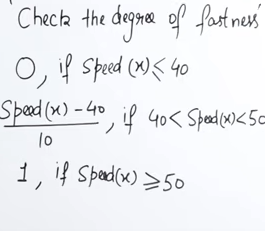 'Check the degree of fastness'
0, if Speed (x) ≤ 40
Speed(x) - 40 / 10, if 40 < Speed(x) < 50
1, if Speed(x) ≥ 50